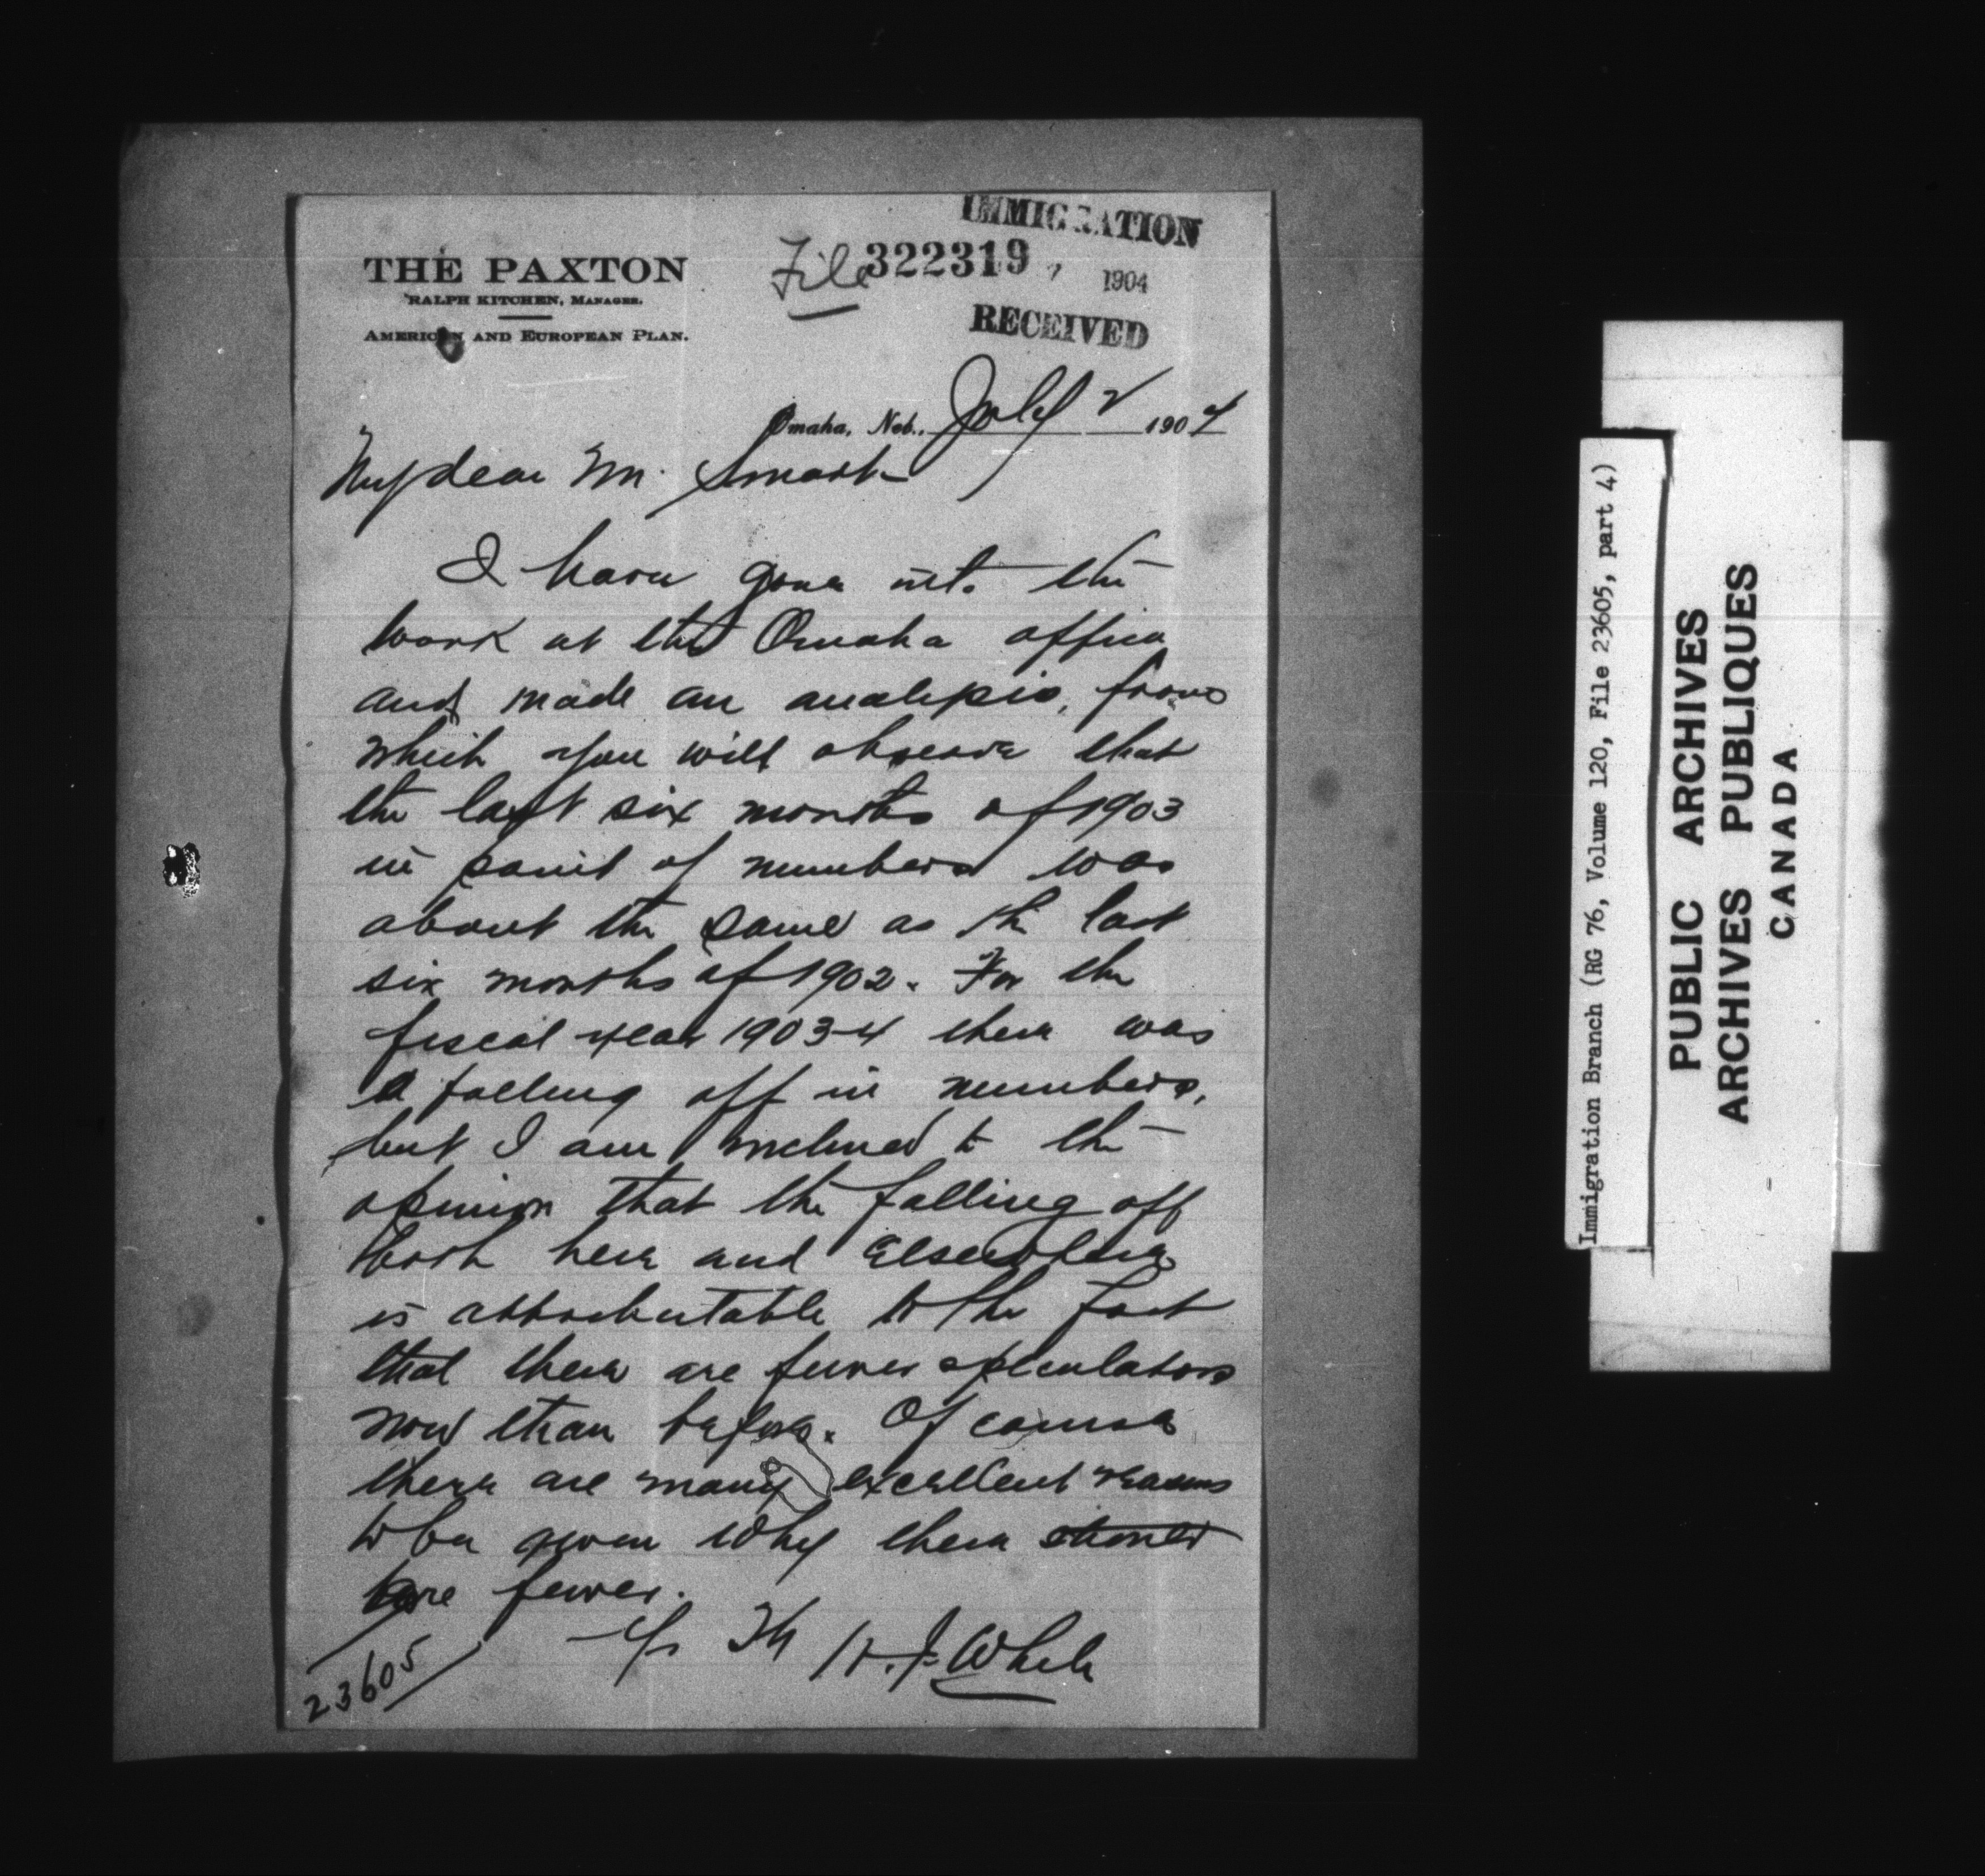 IMMIGRATION
File 322319 7 1904
RECEIVED
THE PAXTON
RALPH KITCHEN, MANAGER.
AMERICAN AND EUROPEAN PLAN.
Omaha, Neb., July 2 1904
My dear Mr. Smart
I have gone into the
work at the Omaha office
and made an analysis, from
which you will observe that
the last six months of 1903
in point of numbers was
about the same as the last
six months of 1902. For the
fiscal year 1903-4 there was
a falling off in numbers,
but I am inclined to the
opinion that the falling off
both here and elsewhere
is attributable to the fact
that there are fewer speculators
now than before. Of course
there are many excellent reasons
to be given why there should
are fewer.
W. J. White
23605
Immigration Branch (RG 76, Volume 120, File 23605, part 4)
PUBLIC ARCHIVES
ARCHIVES PUBLIQUES
CANADA